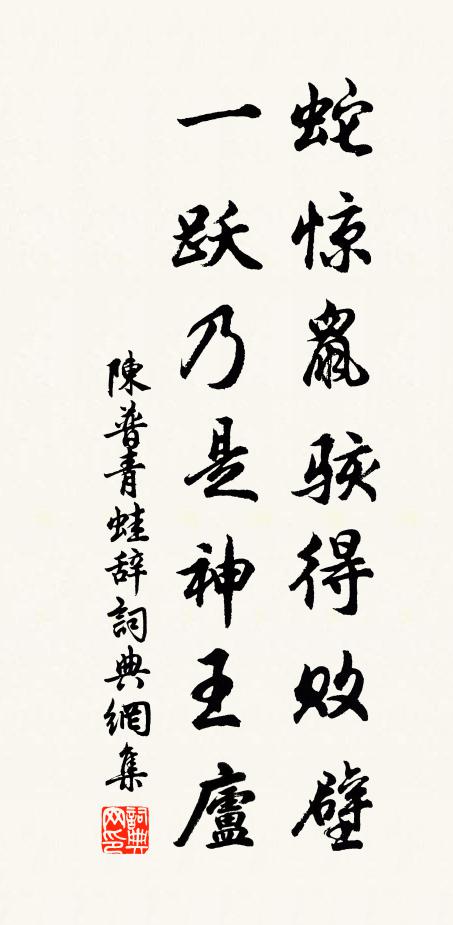 蛇惊鼠骇得败壁
一跃乃是神王廬
陳普青蛙辞詞典網集
詞典网印